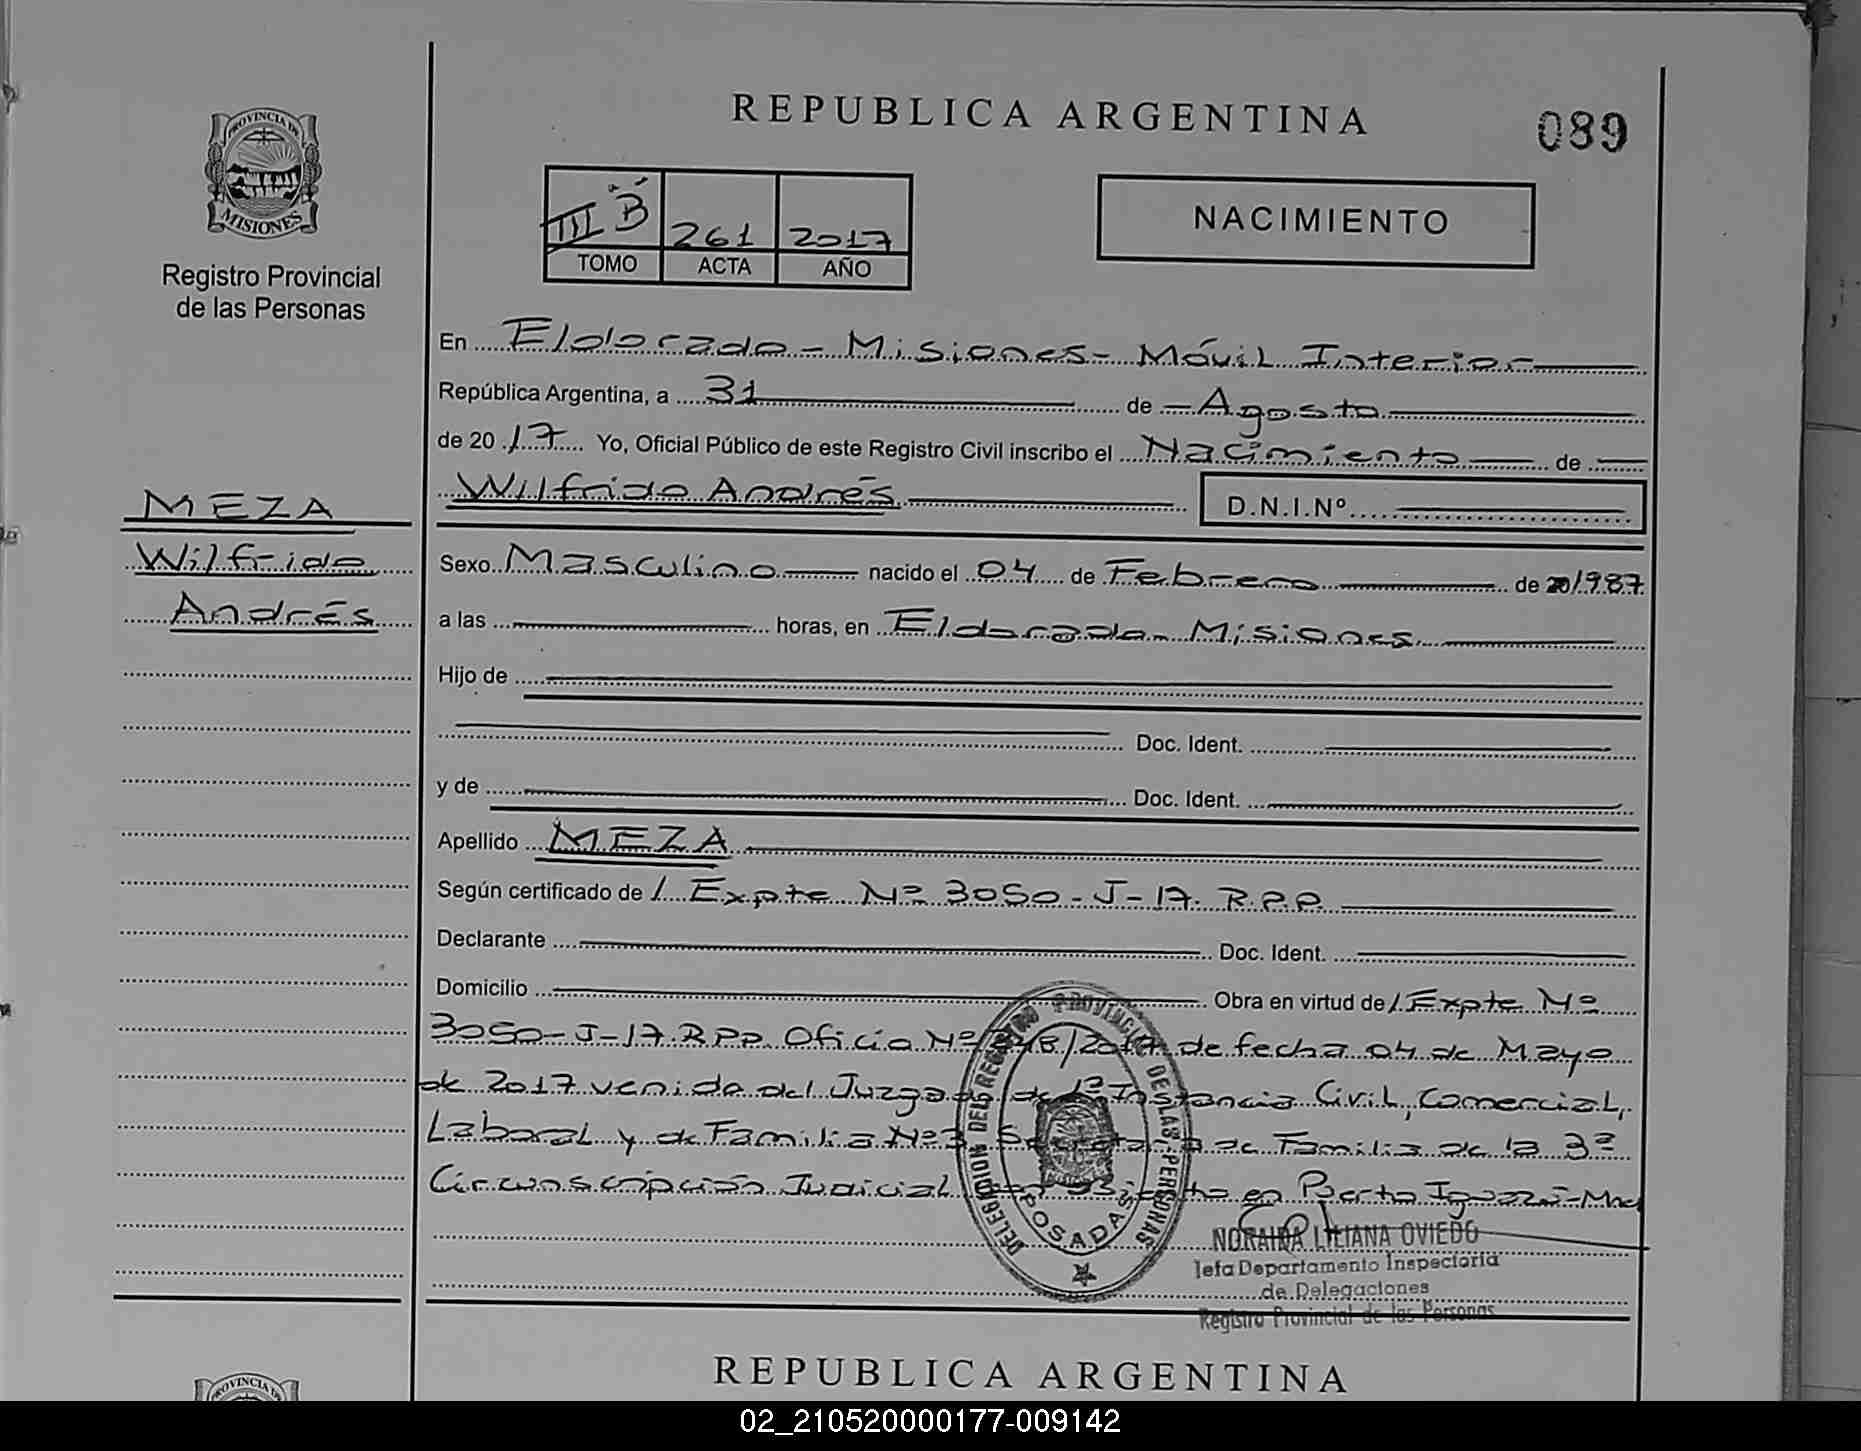 REPUBLICA ARGENTINA
089
PROVINCIA DE
MISIONES
Registro Provincial
de las Personas
III B 261 2017
TOMO ACTA AÑO
NACIMIENTO
En Eldorado - Misiones - Móvil Interior
República Argentina, a 31 de Agosto
de 2017 Yo, Oficial Público de este Registro Civil inscribo el Nacimiento de
Wilfrido Andrés D.N.I.Nº
MEZA
Wilfrido
Andrés
Sexo Masculino nacido el 04 de Febrero de 20/1987
a las horas, en Eldorado - Misiones
Hijo de
Doc. Ident.
y de Doc. Ident.
Apellido MEZA
Según certificado de / Expte Nº 3050-J-17. R.P.P.
Declarante Doc. Ident.
Domicilio Obra en virtud de / Expte Nº
3050-J-17. R.P.P. Oficio Nº /2017 de fecha 04 de Mayo
de 2017 venido del Juzgado de 1ª Instancia Civil, Comercial,
Laboral y de Familia Nº 3 de Familia de la 3ª
Circunscripción Judicial con asiento en Puerto Iguazú - Mnes
DELEGACION DEL REGISTRO PROVINCIAL DE LAS PERSONAS
POSADAS
NORAIDA LILIANA OVIEDO
Jefa Departamento Inspectoria
de Delegaciones
Registro Provincial de las Personas
PROVINCIA DE
REPUBLICA ARGENTINA
02_210520000177-009142